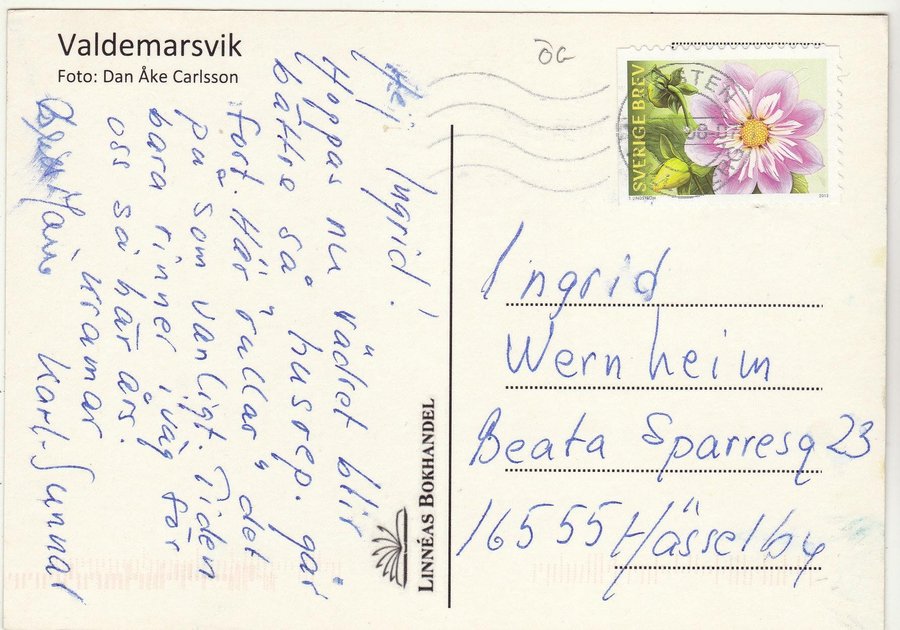 Valdemarsvik
Foto: Dan Åke Carlsson
Hej Ingrid!
Hoppas nu vädret blir
bättre så husrep. går
fort. Här "rullar" det
på som vanligt. Tiden
bara rinner iväg för
oss så här års.
Kramar
Karl-Gunnar
LINNÉAS BOKHANDEL
ƏG
SVERIGE BREV
2013
Ingrid
Wernheim
Beata Sparresg 23
16555 Hässelby